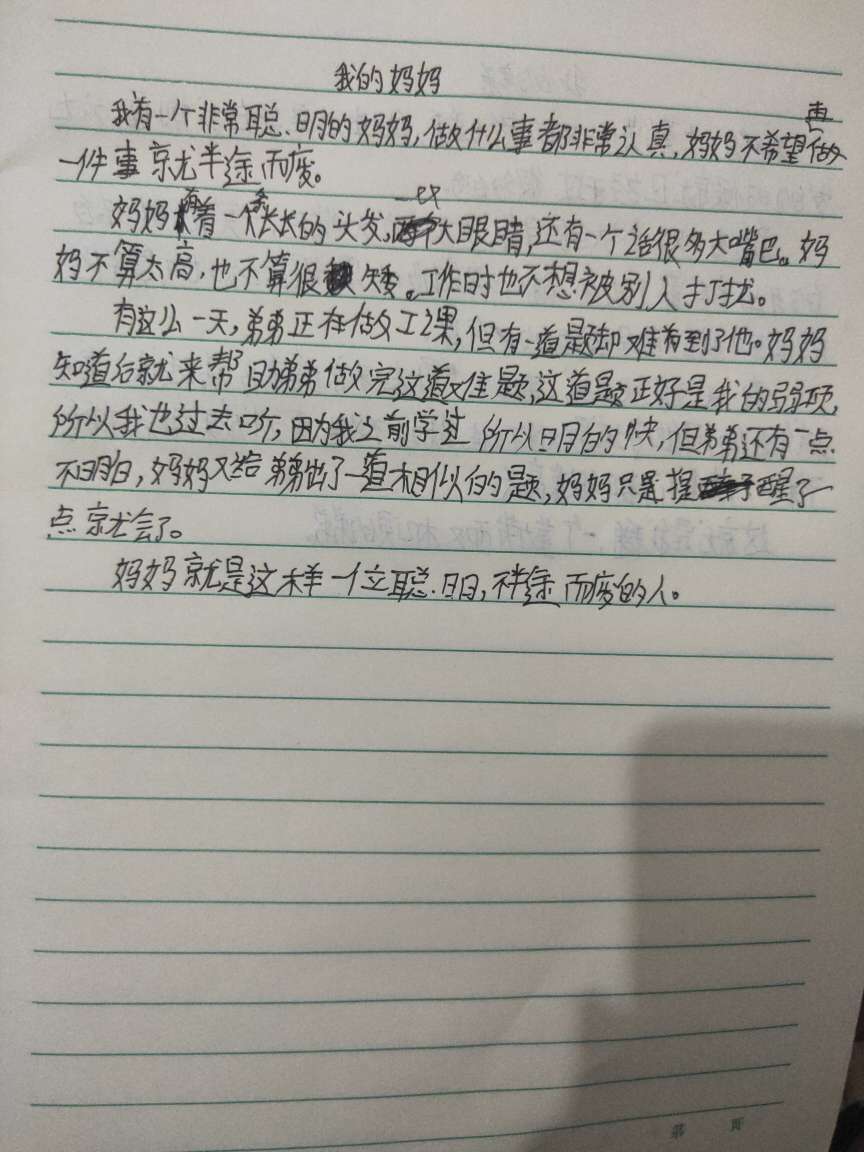 我的妈妈
我有一个非常聪明的妈妈,做什么事都非常认真,妈妈不希望再做
一件事就半途而废。
妈妈有着一条长长的头发,一双大眼睛,还有一个话很多大嘴巴。妈
妈不算太高,也不算很矮。工作时也不想被别人打扰。
有这么一天,弟弟正在做功课,但有一道题却难到了他。妈妈
知道后就来帮助弟弟做完这道难题,这道题正好是我的弱项,
所以我也过去听,因为我之前学过所以明白的快,但弟弟还有一点
不明白,妈妈又给弟弟出了一道相似的题,妈妈只是提醒了一
点就会了。
妈妈就是这样一位聪明,不半途而废的人。
第 页